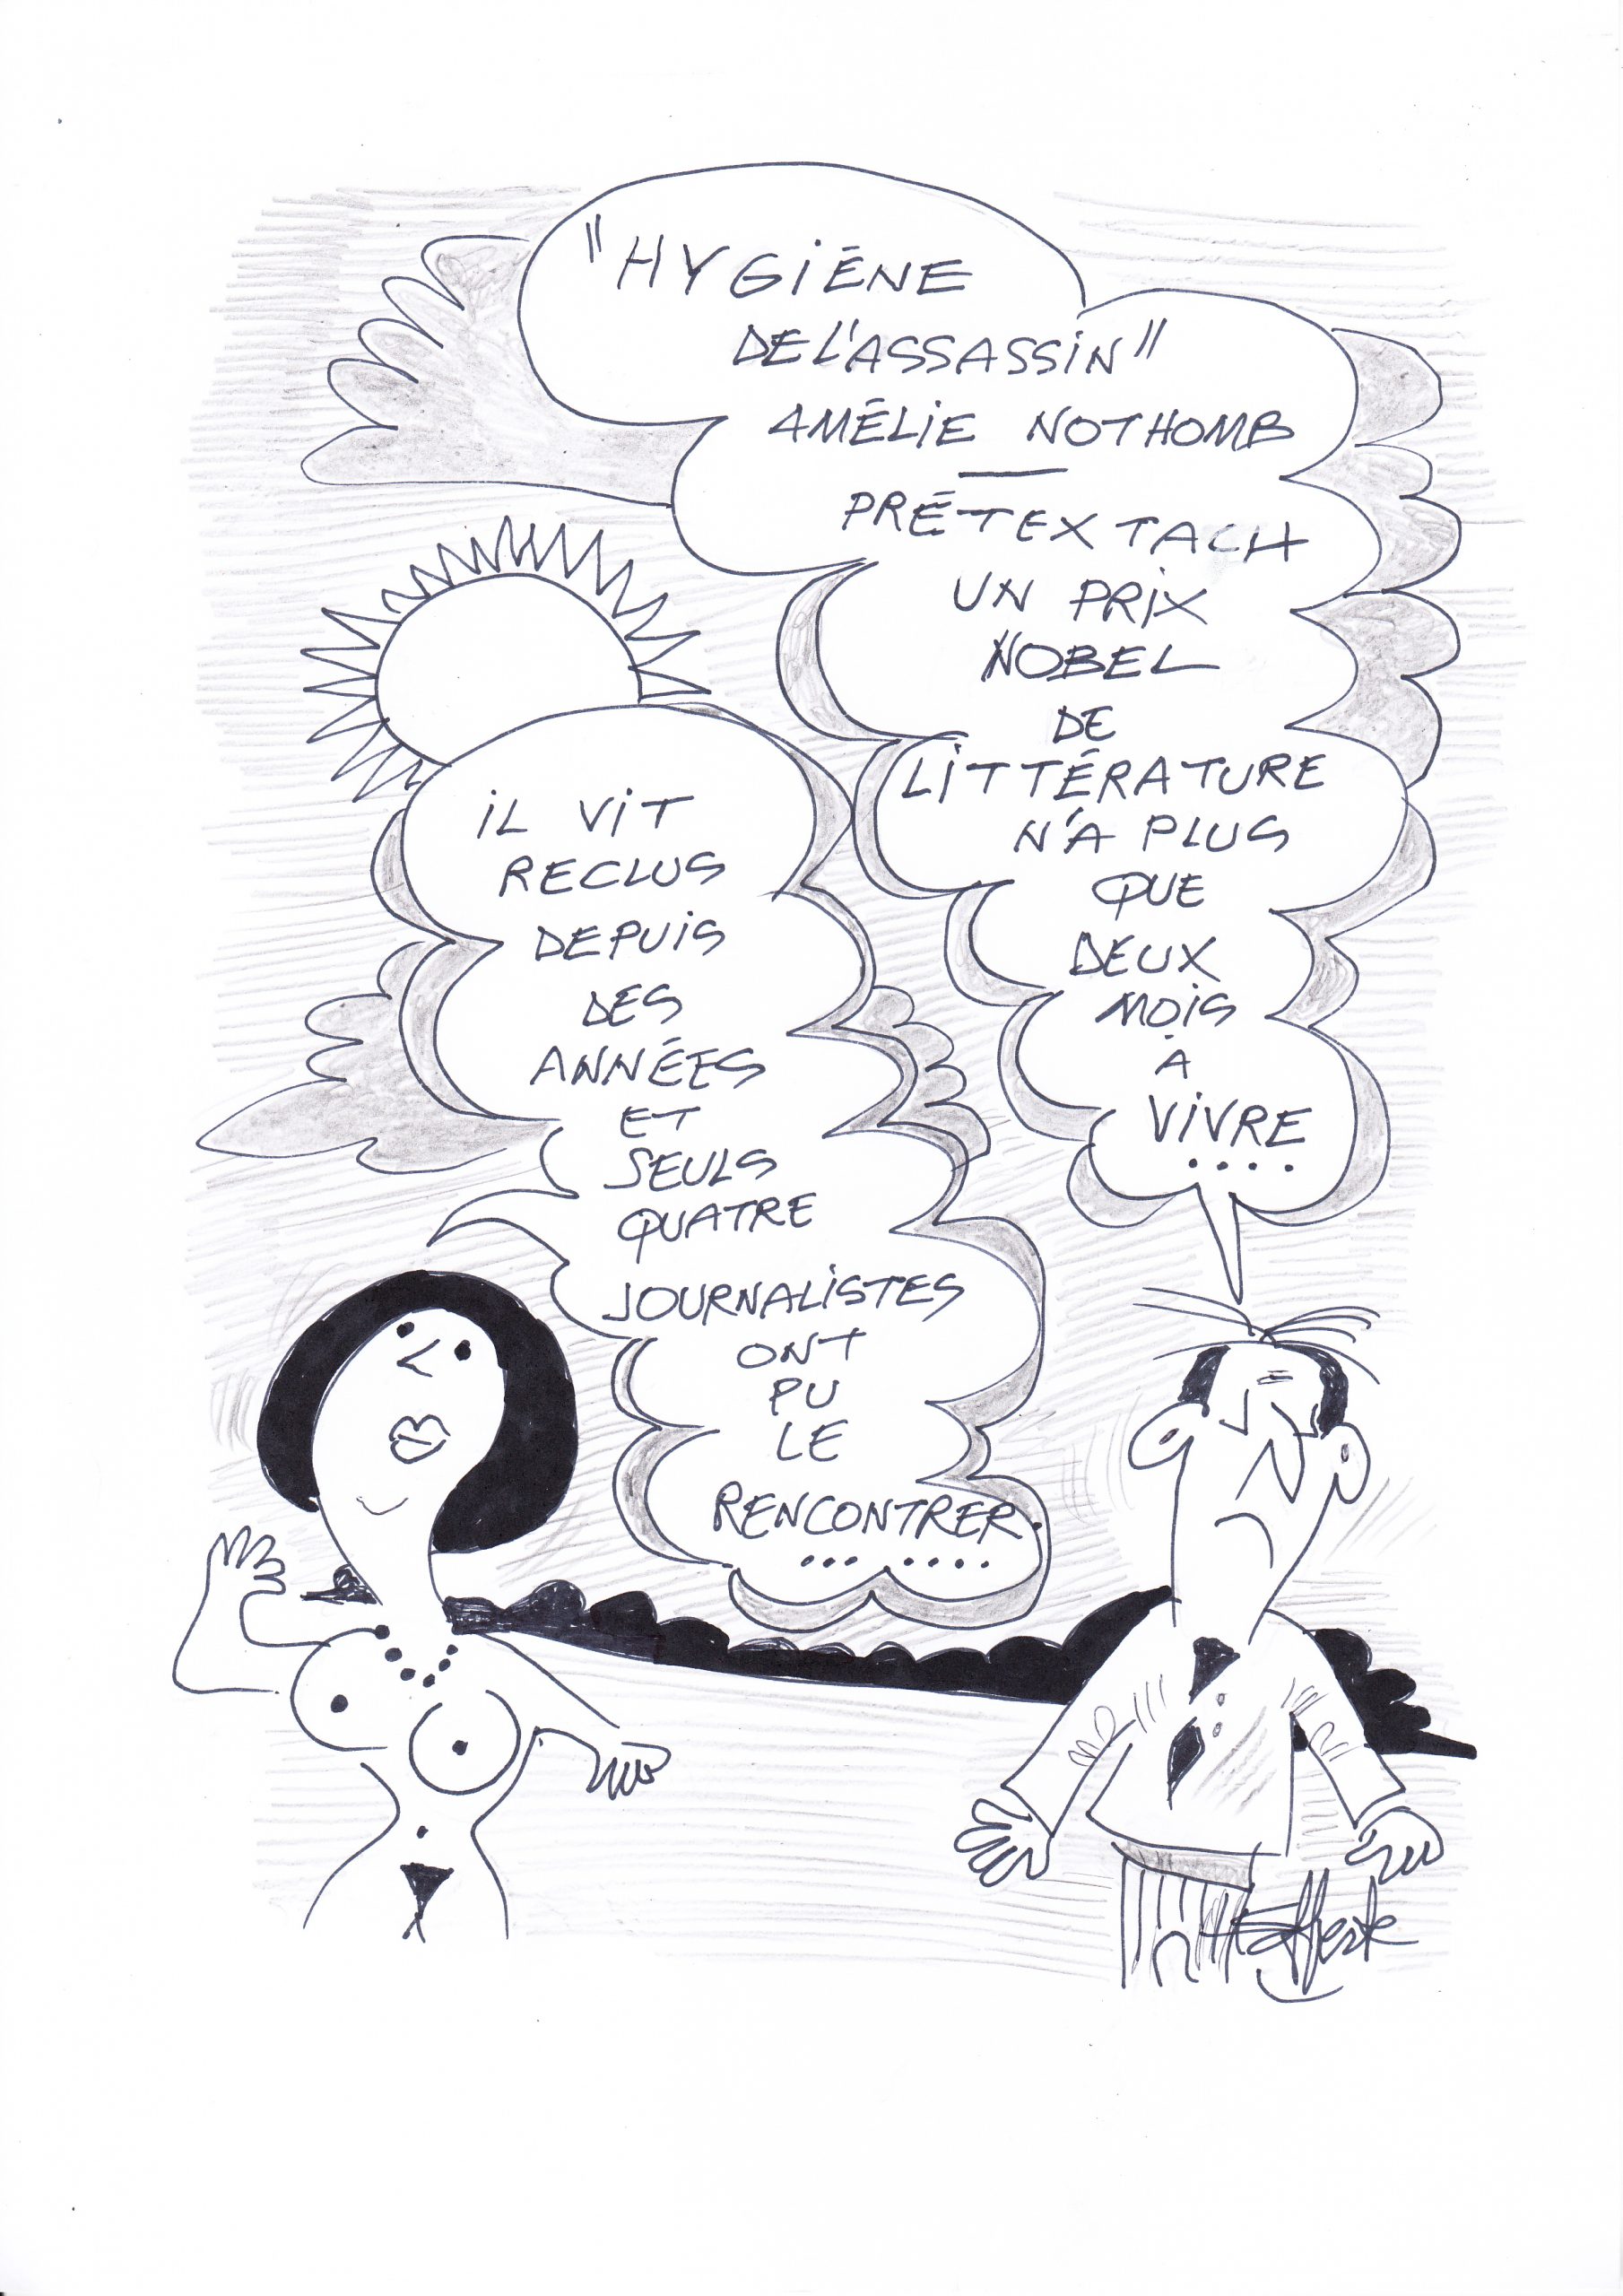 "HYGIÉNE
DE L'ASSASSIN"
AMÉLIE NOTHOMB
—
PRÉTEXTACH
UN PRIX
NOBEL
DE
LITTÉRATURE
N'A PLUS
QUE
DEUX
MOIS
À
VIVRE
....
IL VIT
RECLUS
DEPUIS
DES
ANNÉES
ET
SEULS
QUATRE
JOURNALISTES
ONT
PU
LE
RENCONTRER.
... ....